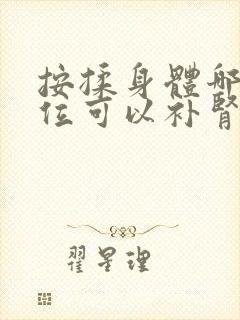 按揉身體哪
位可以补腎
翟星理